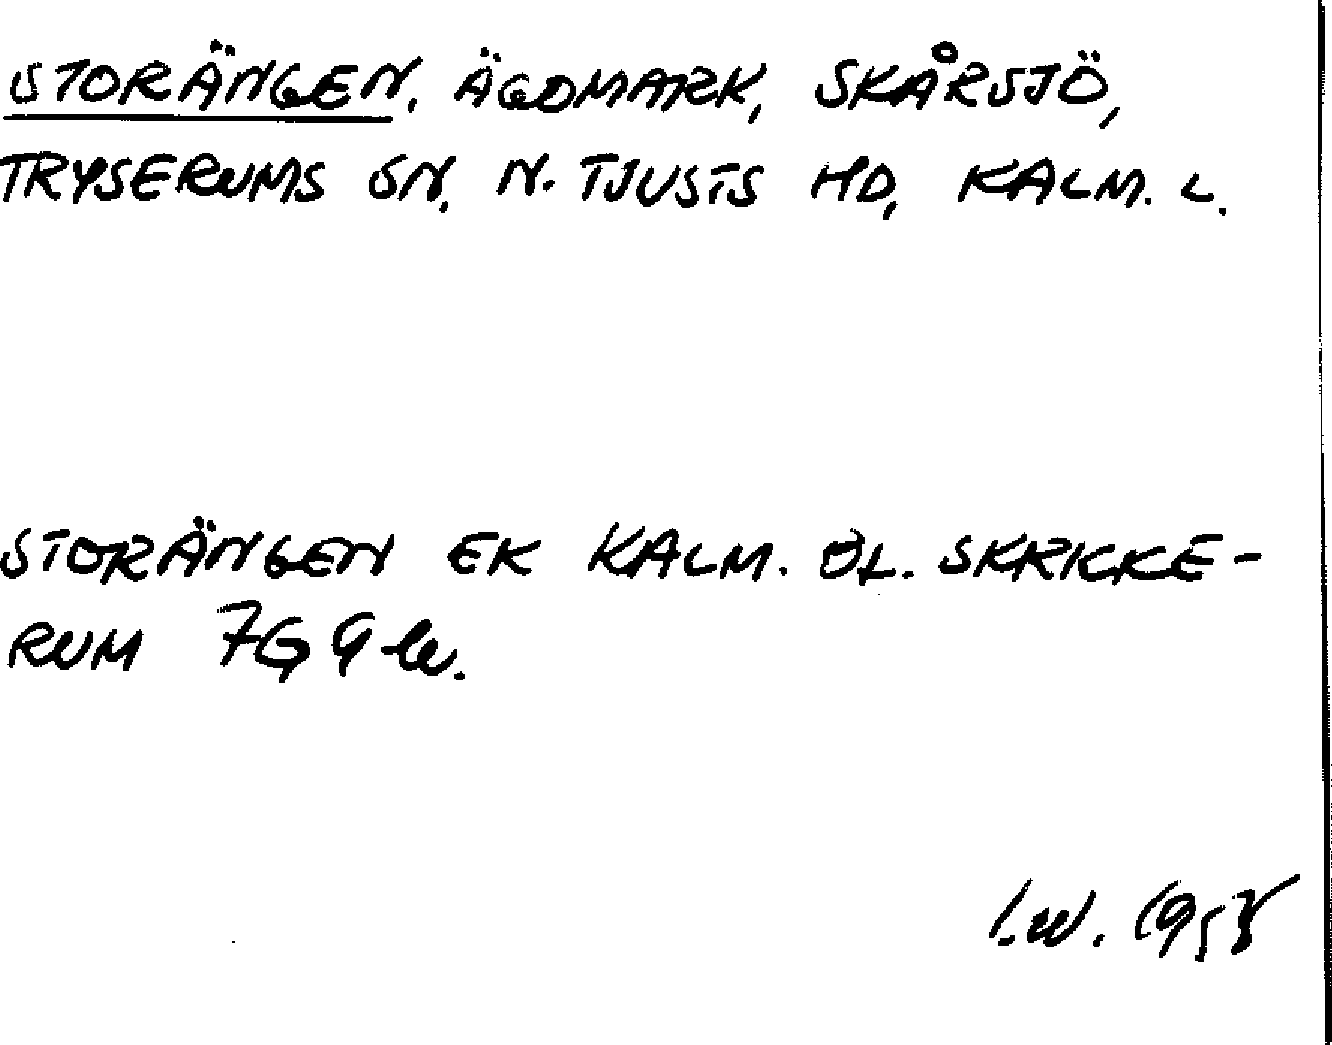 STORÄNGEN. ÄGOMARK, SKÅRSJÖ,
TRYSERUMS SN, N. TJUSTS HD, KALM. L.
STORÄNGEN EK KALM. BL. SKRICKE-
RUM 7G 9
I.W. 1958